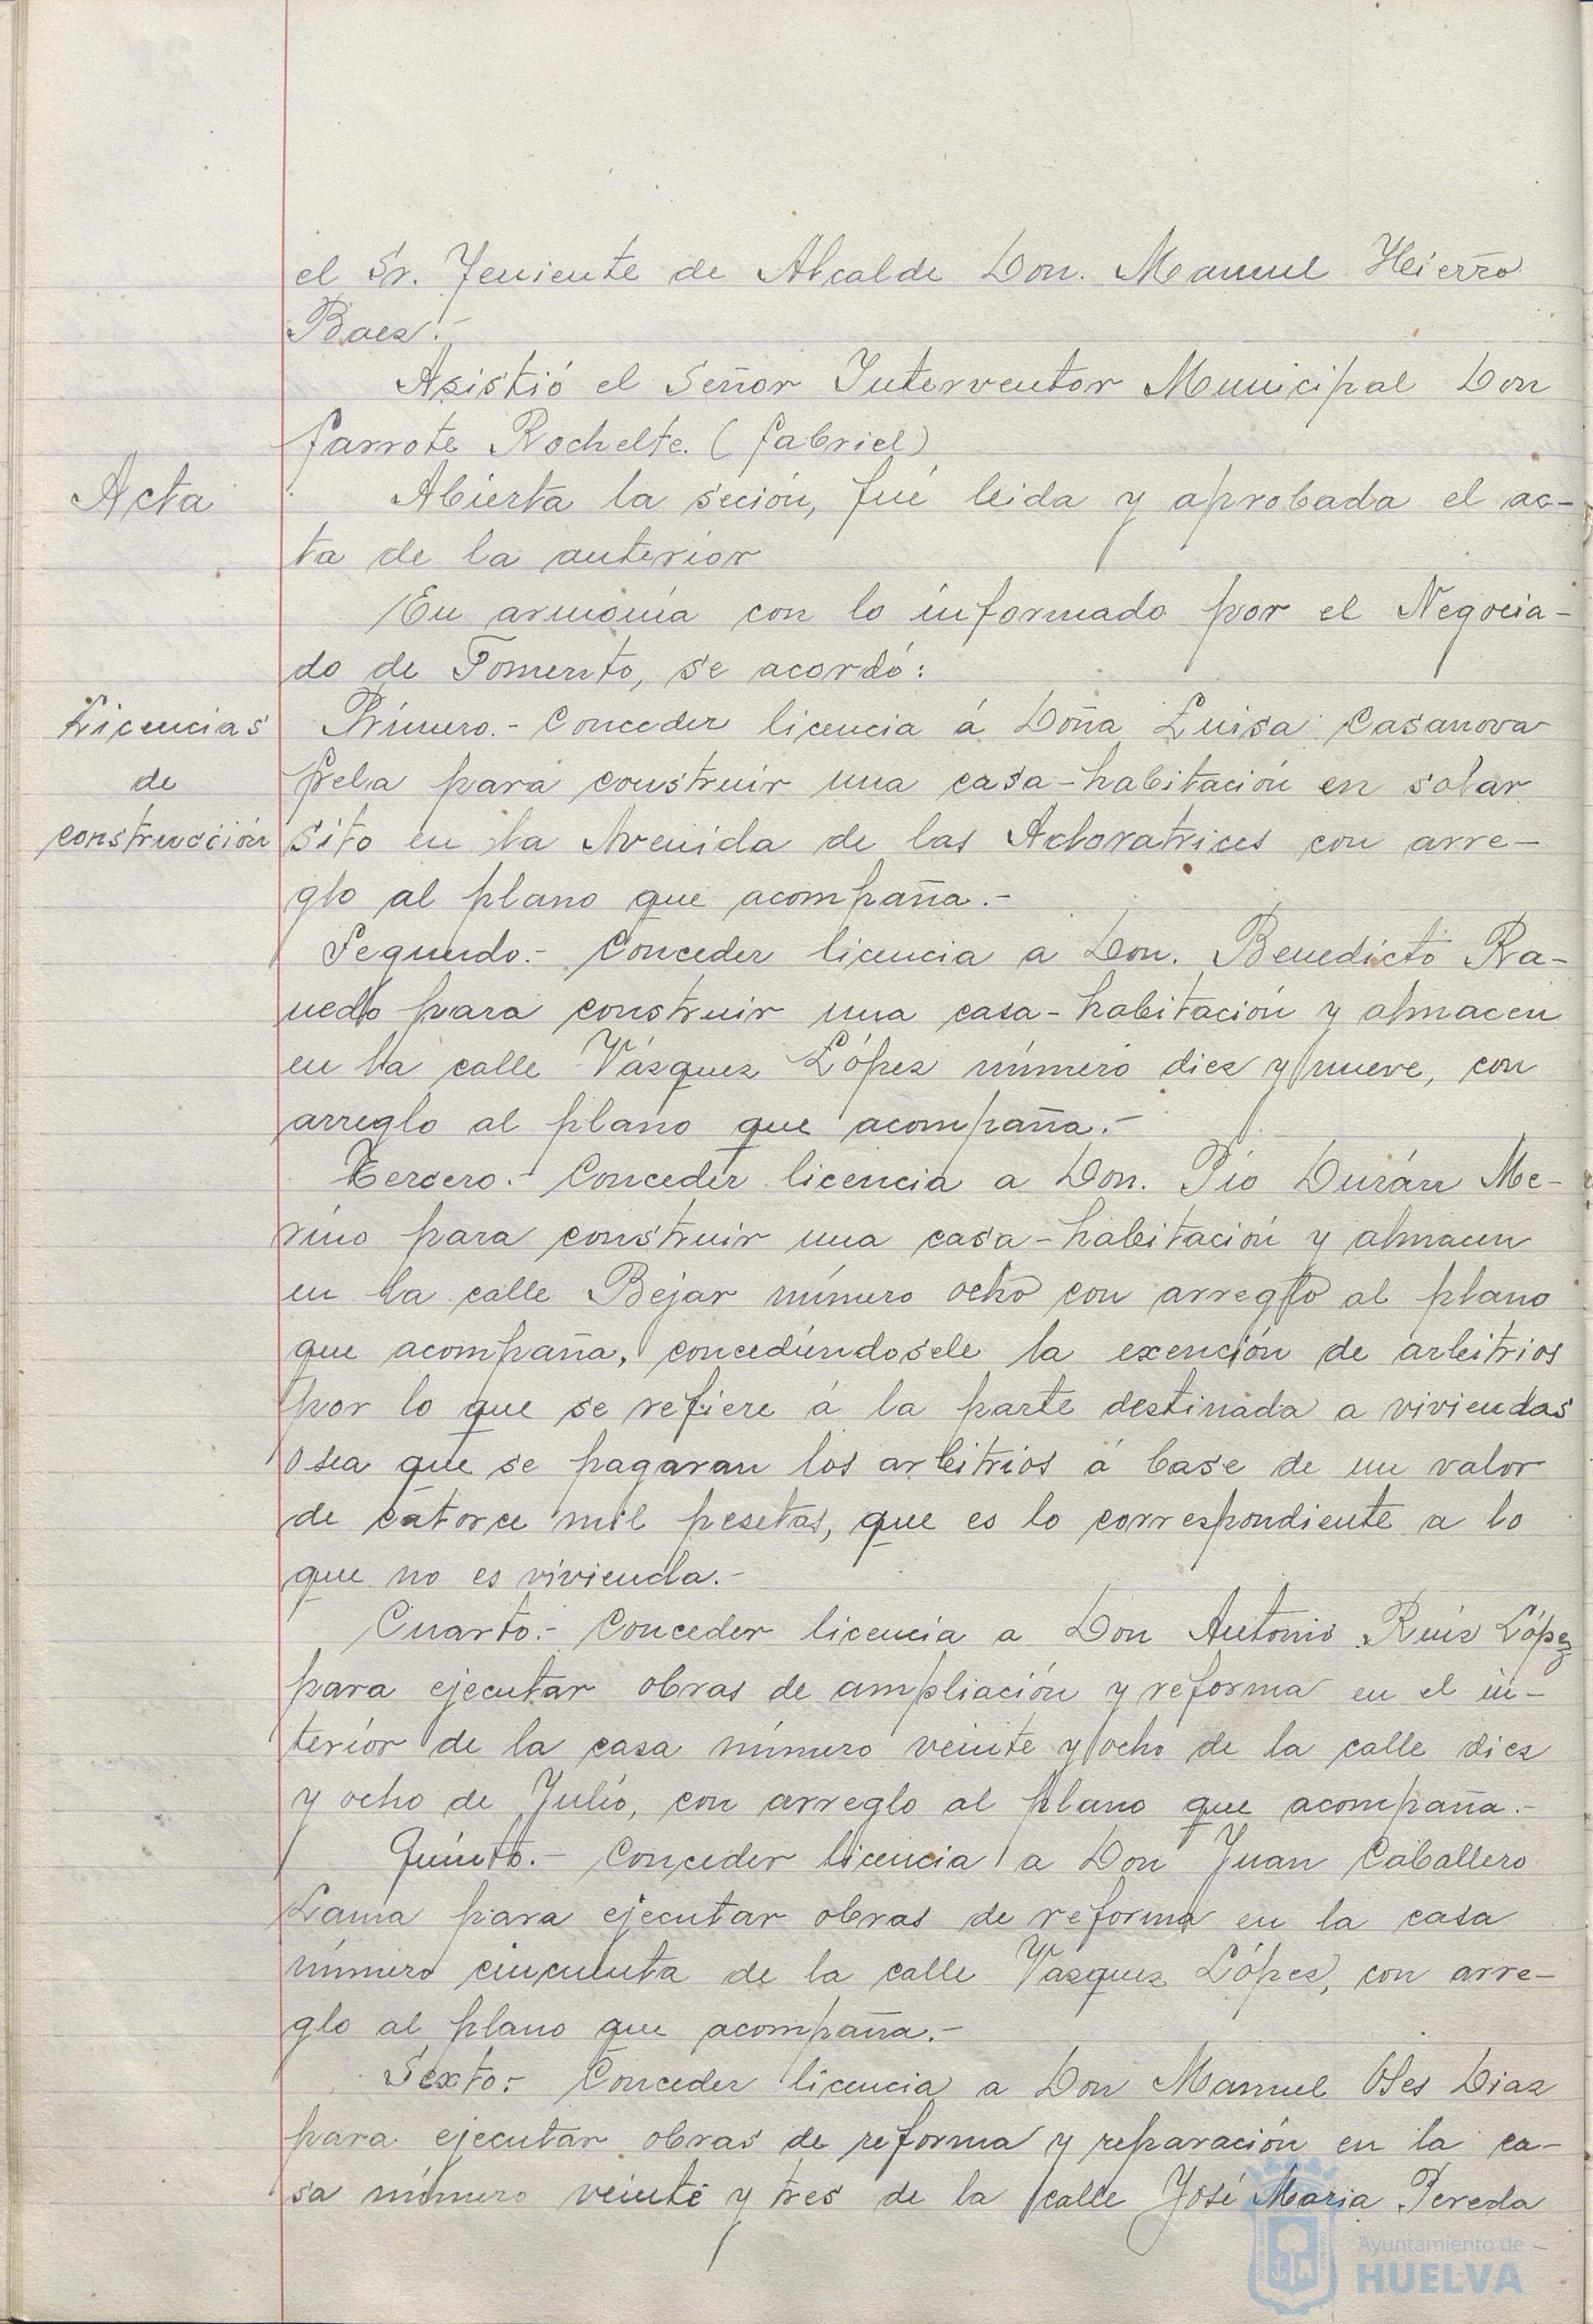 el Sr. Teniente de Alcalde Don. Manuel Hierro
Baez.-
Asistió el Señor Interventor Municipal Don
Garrote Rochelte. (Gabriel)
Acta
Abierta la seción, fué leida y aprobada el ac-
ta de la anterior
En armonia con lo informado por el Negocia-
do de Fomento, se acordó:
Licencias
de
construcción
Primero.- Conceder licencia á Doña Luisa Casanova
para construir una casa-habitación en solar
sito en la Avenida de las Adoratrices con arre-
glo al plano que acompaña.-
Segundo.- Conceder licencia a Don. Benedicto Ra-
nedo para construir una casa-habitación y almacen
en la calle Vázquez López número diez y nueve, con
arreglo al plano que acompaña.-
Tercero.- Conceder licencia a Don. Pío Durán Me-
rino para construir una casa-habitación y almacen
en la calle Bejar número ocho con arreglo al plano
que acompaña, concediéndosele la exención de arbitrios
por lo que se refiere á la parte destinada a viviendas
o sea que se pagaran los arbitrios á base de un valor
de catorce mil pesetas, que es lo correspondiente a lo
que no es vivienda.-
Cuarto.- Conceder licencia a Don Antonio Ruiz López
para ejecutar obras de ampliación y reforma en el in-
terior de la casa número veinte y ocho de la calle diez
y ocho de Julio, con arreglo al plano que acompaña.-
Quinto.- Conceder licencia a Don Juan Caballero
Lama para ejecutar obras de reforma en la casa
número cincuenta de la calle Vázquez López, con arre-
glo al plano que acompaña.-
Sexto.- Conceder licencia a Don Manuel Diaz
para ejecutar obras de reforma y reparación en la ca-
sa número veinte y tres de la calle José Maria Pereda
Ayuntamiento de
HUELVA